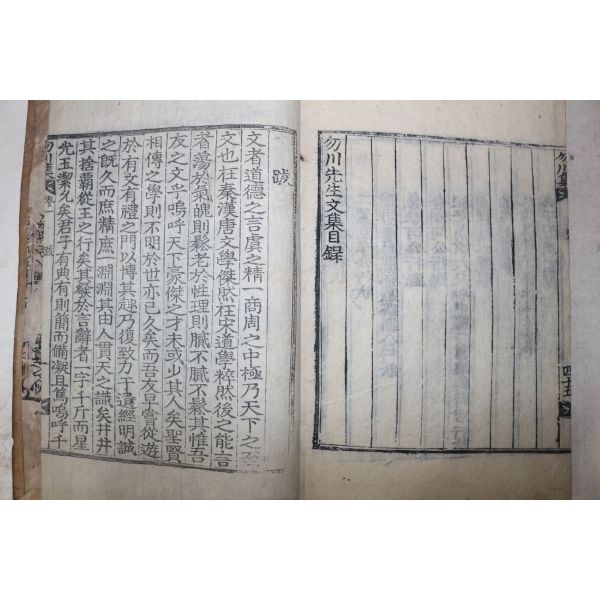 勿川集
四十五
勿川先生文集目錄
跋
文者道德之言虞之精一商周之中極乃天下之至
文也在秦漢唐文學傑然在宋道學粹然後之能言
者蕩於氣魄則鬆老於性理則膩不膩不鬆其惟吾
友之文乎嗚呼天下豪傑之才未或少其人矣聖賢
相傳之學則不明於世亦已久矣而吾友早嘗從遊
於有文有禮之門以博其趣乃復致力于遺經明誠
之旣久而庶精庶一淵淵其由人貫天之識矣井井
其捨覇從王之行矣其發於言辭者一字千斤而星
光玉潔允矣君子有典有則簡而備凝且篤嗚呼千
勿川集 跋